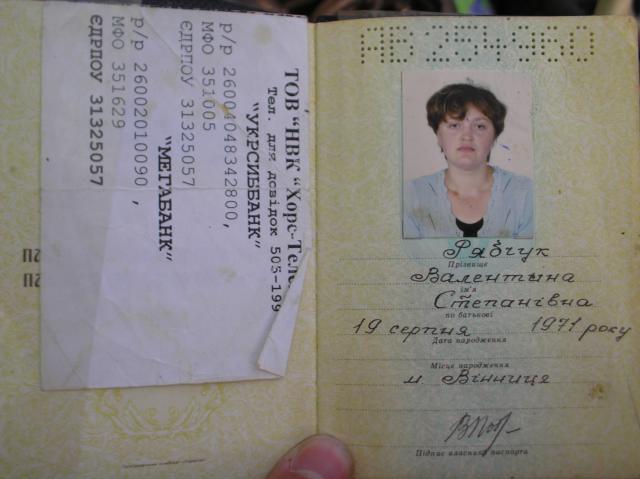 ТОВ "НВК "Хорс-Теле
Тел. для довідок 505-199
"УКРСИББАНК"
р/р 26004048342800,
МФО 351005
ЄДРПОУ 31325057
"МЕГАБАНК"
р/р 26002010090 ,
МФО 351629
ЄДРПОУ 31325057
Рябчук
Прізвище
Валентина
ім'я
Степанівна
по батькові
19 серпня 1971 року
Дата народження
Місце народження
м. Вінниця
Підпис власника паспорта